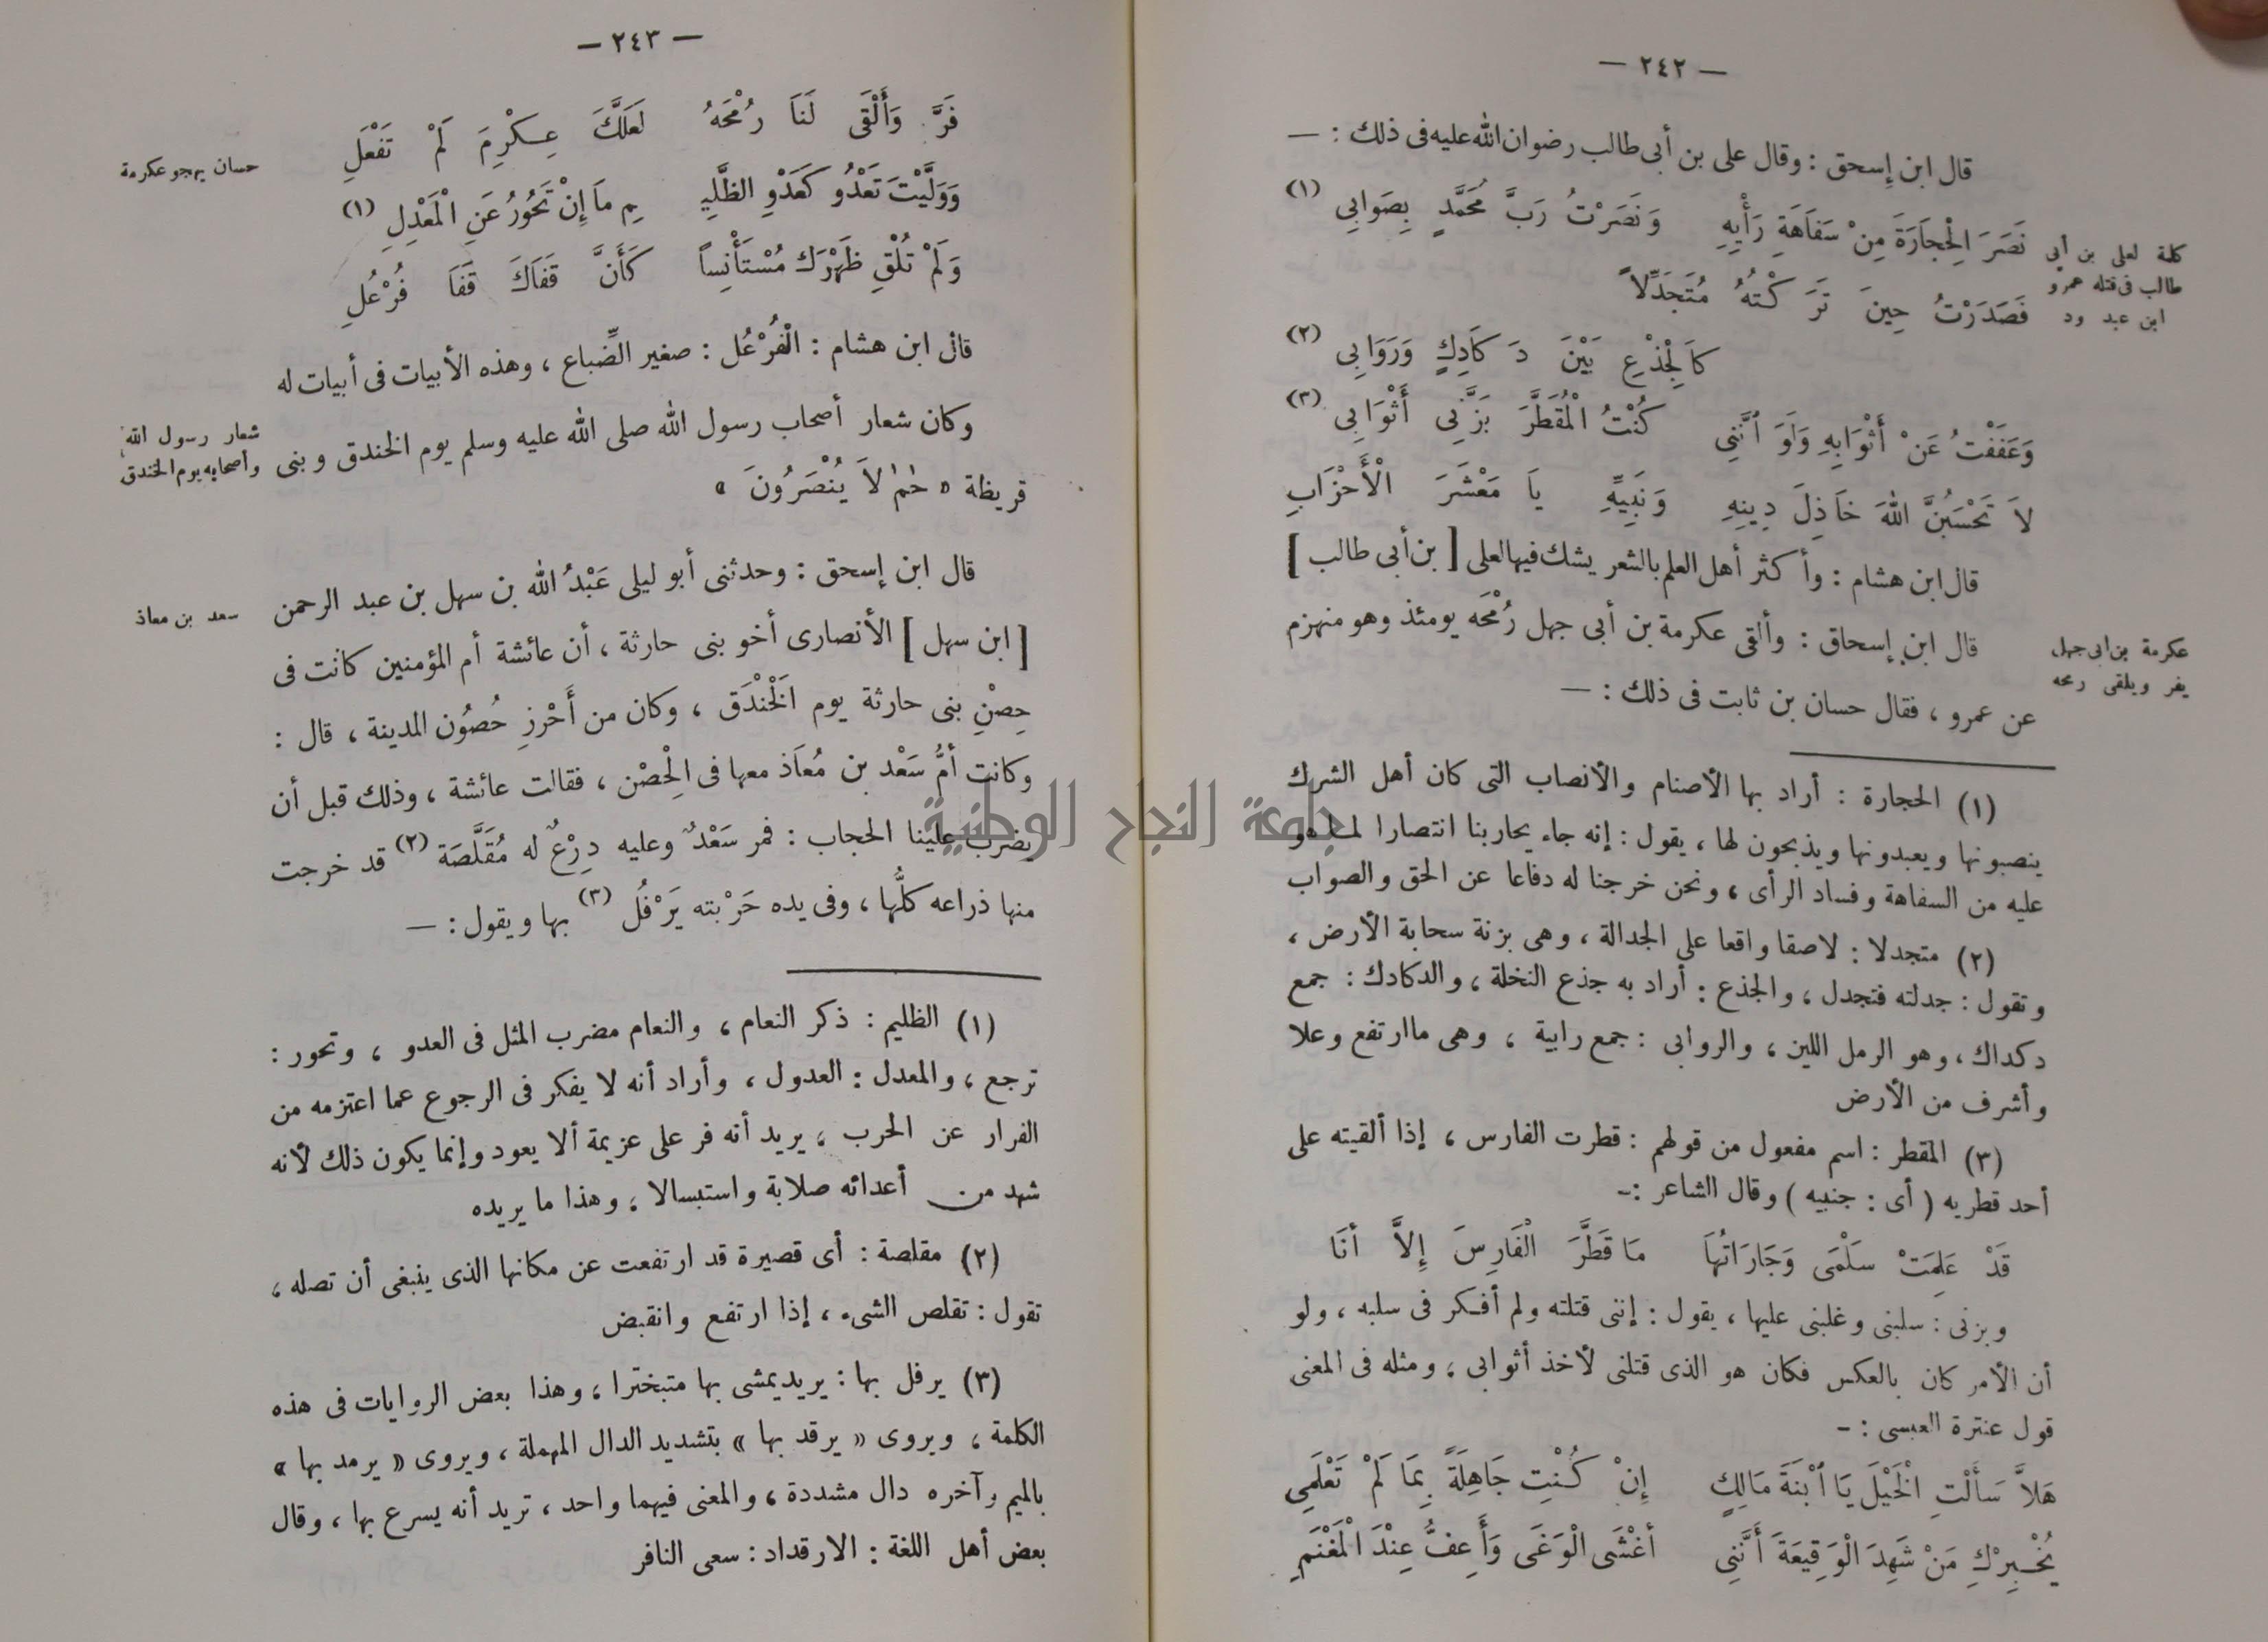 — ٢٤٢ —
قال ابن إسحق : وقال على بن أبى طالب رضوان الله عليه فى ذلك : —
نَصَرَ الْحِجَارَةَ مِنْ سَفَاهَةِ رَأْيِهِ وَنَصَرْتُ رَبَّ مُحَمَّدٍ بِصَوَابِى (١)
فَصَدَرْتُ حِينَ تَرَكْتُهُ مُتَجَدِّلاً
كَالْجِذْعِ بَيْنَ دَكَادِكٍ وَرَوَابِى (٢)
وَعَفَفْتُ عَنْ أَثْوَابِهِ وَلَوَ ٱنَّنِى كُنْتُ الْمُقَطَّرَ بَزَّنِى أَثْوَابِى (٣)
لاَ تَحْسَبُنَّ اللهَ خَاذِلَ دِينِهِ وَنَبِيِّهِ يَا مَعْشَرَ الْأَحْزَابِ
قال ابن هشام : وأكثر أهل العلم بالشعر يشك فيها لعلى [ بن أبى طالب ]
قال ابن إسحاق : وألقى عكرمة بن أبى جهل رُمْحَه يومئذ وهو منهزم
عن عمرو ، فقال حسان بن ثابت فى ذلك : —
كلمة لعلى بن أبى
طالب فى قتله عمرو
ابن عبد ود
عكرمة بن ابى جهل
يفر ويلقى رمحه
(١) الحجارة : أراد بها الأصنام والأنصاب التى كان أهل الشرك
ينصبونها ويعبدونها ويذبحون لها ، يقول : إنه جاء يحاربنا انتصارا لما هو
عليه من السفاهة وفساد الرأى ، ونحن خرجنا له دفاعا عن الحق والصواب
(٢) متجدلا : لاصقا واقعا على الجدالة ، وهى بزنة سحابة الأرض ،
وتقول : جدلته فتجدل ، والجذع : أراد به جذع النخلة ، والدكادك : جمع
دكداك ، وهو الرمل اللين ، والروابى : جمع رابية ، وهى ما ارتفع وعلا
وأشرف من الأرض
(٣) المقطر : اسم مفعول من قولهم : قطرت الفارس ، إذا ألقيته على
أحد قطريه ( أى : جنبيه ) وقال الشاعر :-
قَدْ عَلِمَتْ سَلْمَى وَجَارَاتُهَا مَا قَطَّرَ الْفَارِسَ إِلاَّ أَنَا
وبزنى : سلبنى وغلبنى عليها ، يقول : إننى قتلته ولم أفكر فى سلبه ، ولو
أن الأمر كان بالعكس فكان هو الذى قتلنى لأخذ أثوابى ، ومثله فى المعنى
قول عنترة العبسى : -
هَلاَّ سَأَلْتِ الْخَيْلَ يَا ٱبْنَةَ مَالِكٍ إِنْ كُنْتِ جَاهِلَةً بِمَا لَمْ تَعْلَمِى
يُخْبِرْكِ مَنْ شَهِدَ الْوَقِيعَةَ أَنَّنِى أَغْشَى الْوَغَى وَأَعِفُّ عِنْدَ الْمَغْنَمِ
— ٢٤٣ —
فَرَّ وَأَلْقَى لَنَا رُمْحَهُ لَعَلَّكَ عِكْرِمَ لَمْ تَفْعَلِ
وَوَلَّيْتَ تَعْدُو كَعَدْوِ الظَّلِيـ ـمِ مَا إِنْ تَحُورُ عَنِ الْمَعْدِلِ (١)
وَلَمْ تُلْقِ ظَهْرَكَ مُسْتَأْنِساً كَأَنَّ قَفَاكَ قَفَا فُرْعُلِ
قال ابن هشام : الْفُرْعُل : صغير الضِّباع ، وهذه الأبيات فى أبيات له
وكان شعار أصحاب رسول الله صلى الله عليه وسلم يوم الخندق وبنى
قريظة « حٰمٰ لاَ يُنْصَرُونَ »
قال ابن إسحق : وحدثنى أبو ليلى عَبْدُ الله بن سهل بن عبد الرحمن
[ ابن سهل ] الأنصارى أخو بنى حارثة ، أن عائشة أم المؤمنين كانت فى
حِصْنِ بنى حارثة يوم الْخَنْدَق ، وكان من أَحْرزِ حُصُون المدينة ، قال :
وكانت أمُّ سَعْد بن مُعَاذ معها فى الْحِصْن ، فقالت عائشة ، وذلك قبل أن
يضرب علينا الحجاب : فمر سَعْدٌ وعليه دِرْعٌ له مُقَلَّصَة (٢) قد خرجت
منها ذراعه كلُّها ، وفى يده حَرْبته يَرْفُلُ (٣) بها ويقول : —
حسان يهجو عكرمة
شعار رسول الله
وأصحابه يوم الخندق
سعد بن معاذ
(١) الظليم : ذكر النعام ، والنعام مضرب المثل فى العدو ، وتحور :
ترجع ، والمعدل : العدول ، وأراد أنه لا يفكر فى الرجوع عما اعتزمه من
الفرار عن الحرب ، يريد أنه فر على عزيمة ألا يعود وإنما يكون ذلك لأنه
شهد من أعدائه صلابة واستبسالا ، وهذا ما يريده
(٢) مقلصة : أى قصيرة قد ارتفعت عن مكانها الذى ينبغى أن تصله ،
تقول : تقلص الشىء ، إذا ارتفع وانقبض
(٣) يرفل بها : يريد يمشى بها متبخترا ، وهذا بعض الروايات فى هذه
الكلمة ، ويروى « يرقد بها » بتشديد الدال المهملة ، ويروى « يرمد بها »
بالميم وآخره دال مشددة ، والمعنى فيهما واحد ، تريد أنه يسرع بها ، وقال
بعض أهل اللغة : الارقداد : سعى النافر
جامعة النجاح الوطنية